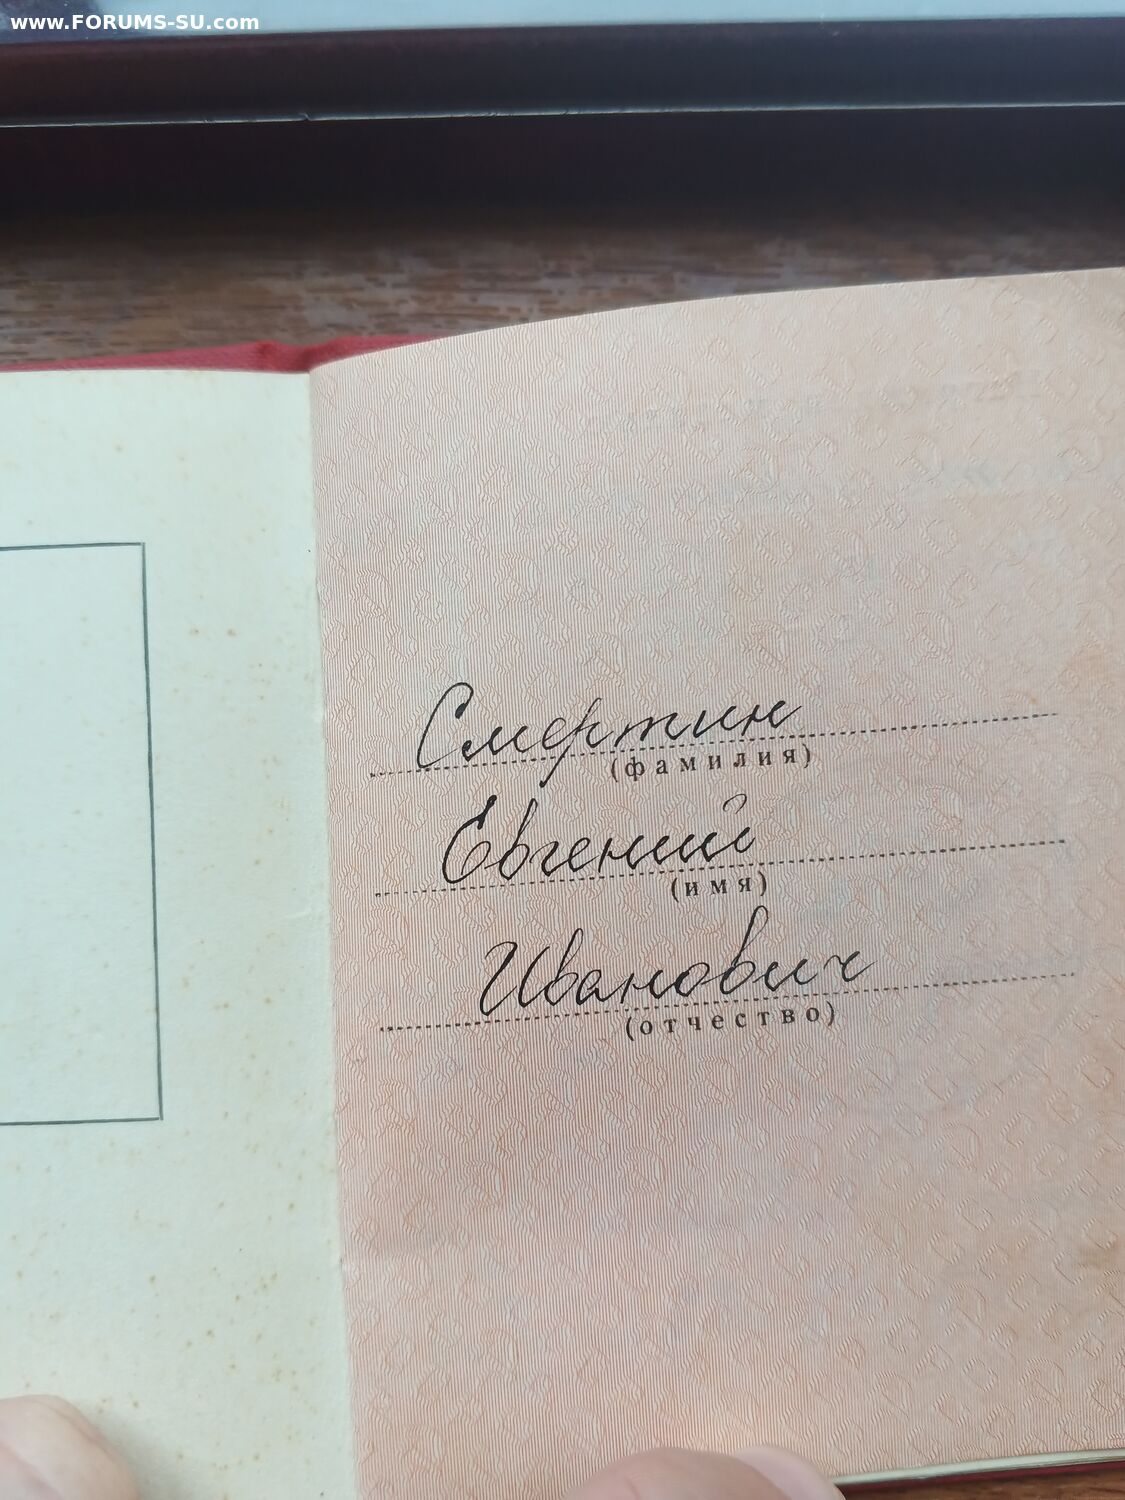 www.FORUMS-SU.com
Смертин
(фамилия)
Евгений
(имя)
Иванович
(отчество)